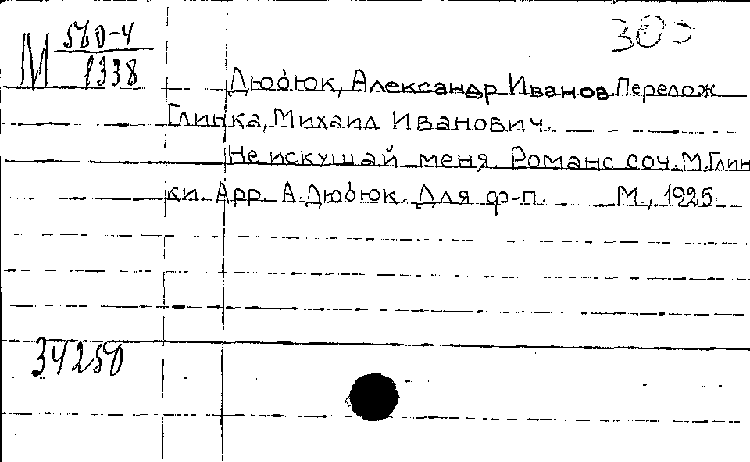 М 560-4
1338
300
Дюбюк, Александр Иванов. Перелож
Глинка, Михаил Иванович.
Не искушай меня. Романс соч. М. Глин
ки. Арр. А. Дюбюк. Для ф-п. М., 1925.
34250